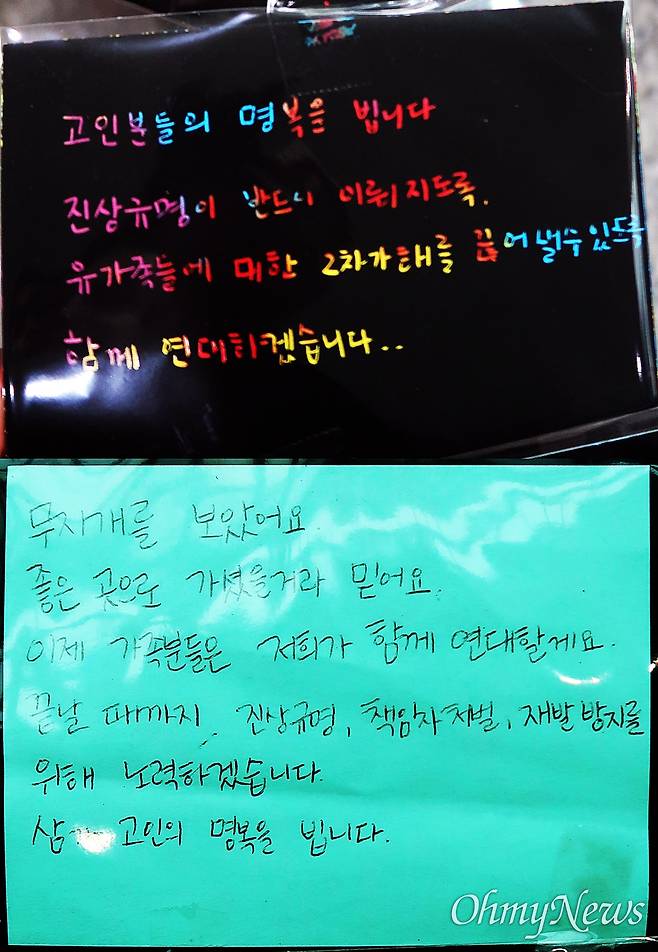 고인분들의 명복을 빕니다
진상규명이 반드시 이뤄지도록.
유가족들에 대한 2차가해를 끊어 낼수 있도록
함께 연대하겠습니다..
무지개를 보았어요.
좋은 곳으로 가셨을거라 믿어요.
이제 가족분들은 저희가 함께 연대할게요.
끝날 때까지. 진상규명, 책임자처벌, 재발방지를
위해 노력하겠습니다.
고인의 명복을 빕니다.
OhmyNews